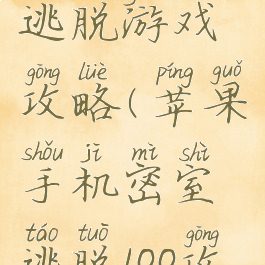 逃脱游戏
gōng lüè píng guǒ
攻略(苹果
shǒu jī mì shì
手机密室
táo tuō gōng
逃脱100攻